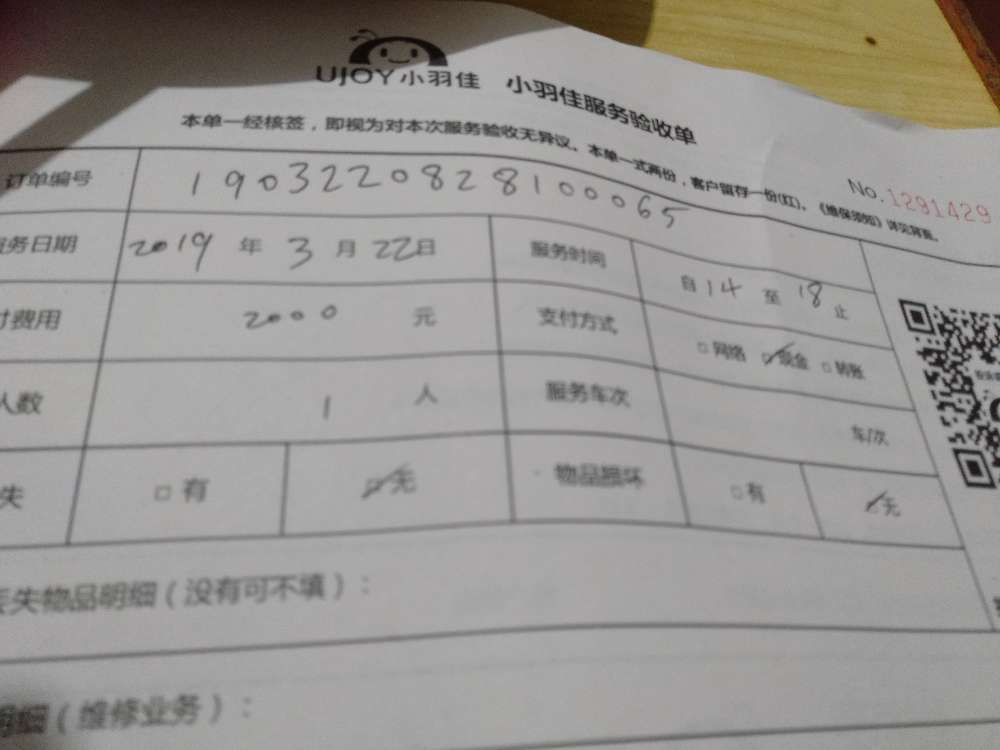 UJOY小羽佳 小羽佳服务验收单
本单一经核签，即视为对本次服务验收无异议。本单一式两份，客户留存一份(红)。《维保须知》详见背面。
No.1291429
订单编号 1903220828100065
服务日期 2019年3月22日 服务时间 自14至18止
付费用 2000元 支付方式 □网络 ☑现金 □转账
人数 1人 服务车次 车/次
失 □有 ☑无 物品损坏 □有 ☑无
丢失物品明细（没有可不填）：
明细（维修业务）：